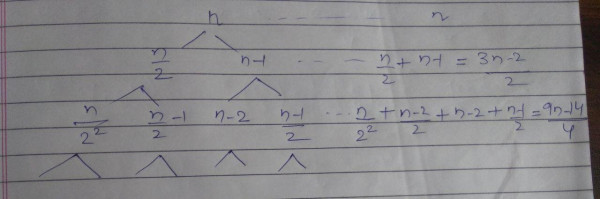 n - - - - - - - - - n
n/2 n-1 - - - n/2 + n-1 = 3n-2/2
n/2² n/2 -1 n-2 n-1/2 ... n/2² + n-2/2 + n-2 + n-1/2 = 9n-14/4